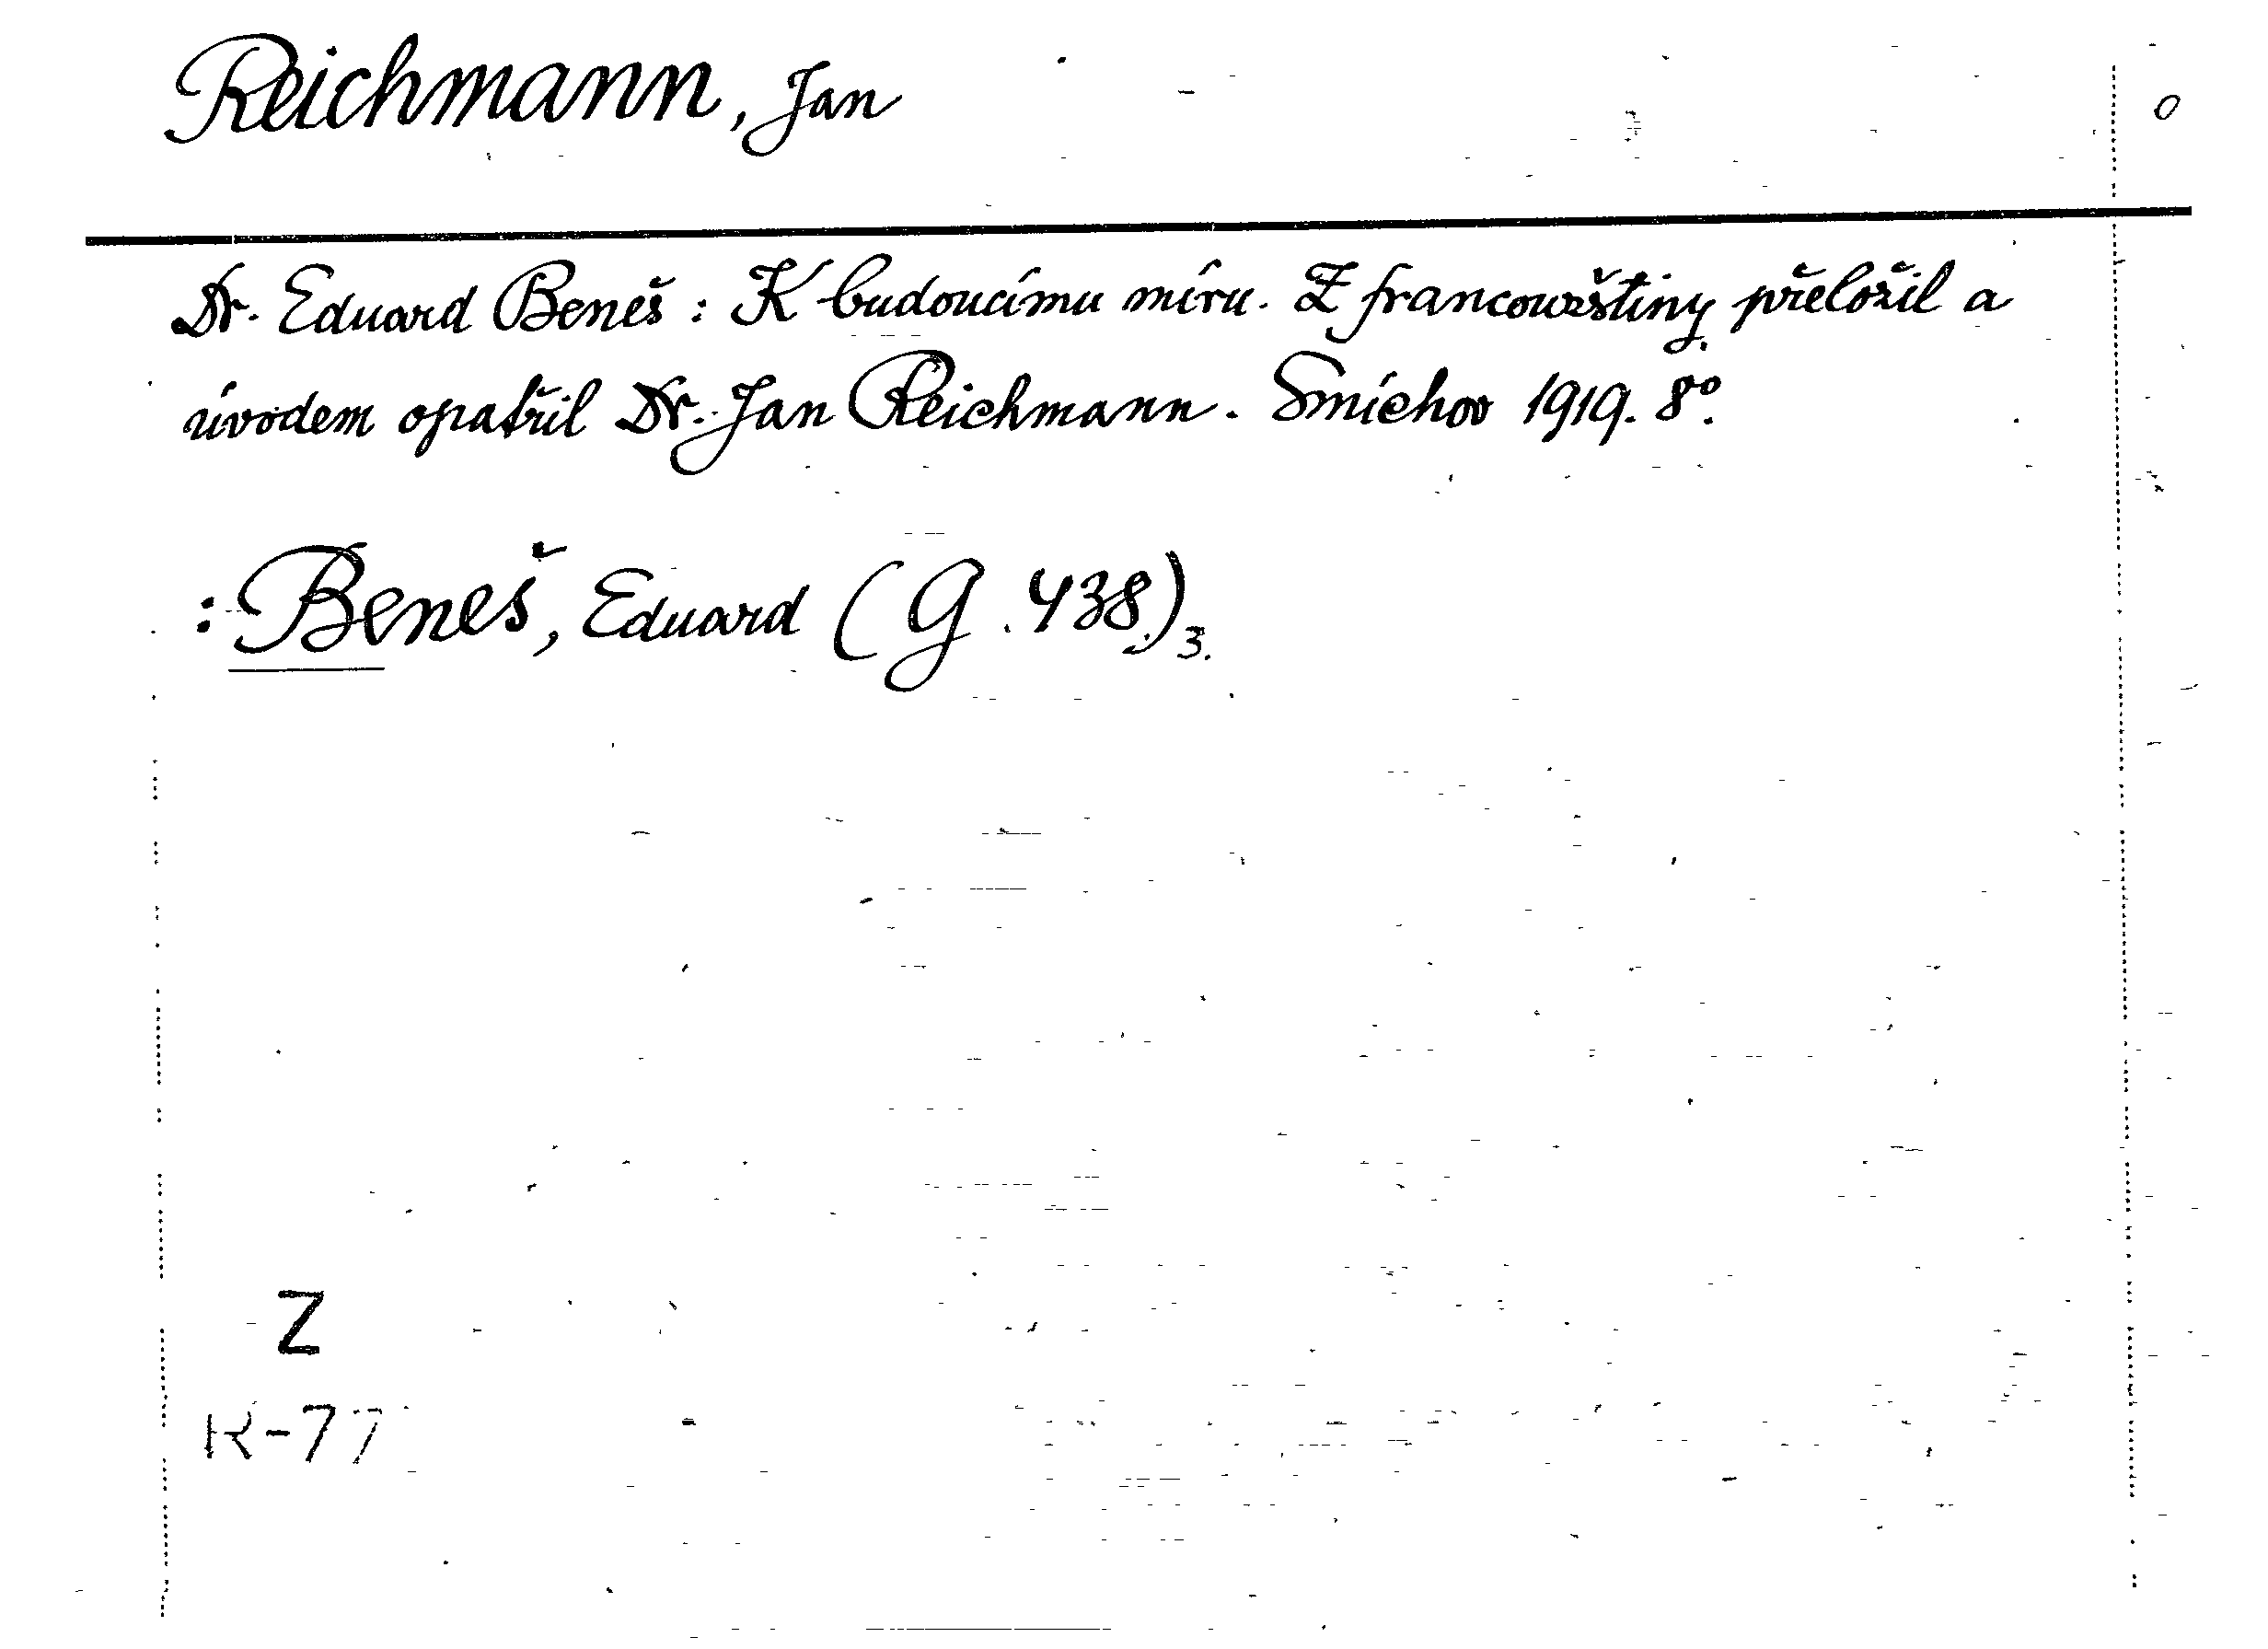 Reichmann, Jan
0
Dr. Eduard Beneš: K budoucímu míru. Z francouzštiny přeložil a
úvodem opatřil Dr. Jan Reichmann. Smíchov 1919. 8º.
: Beneš, Eduard (G. 438.) 3.
Z
K-77